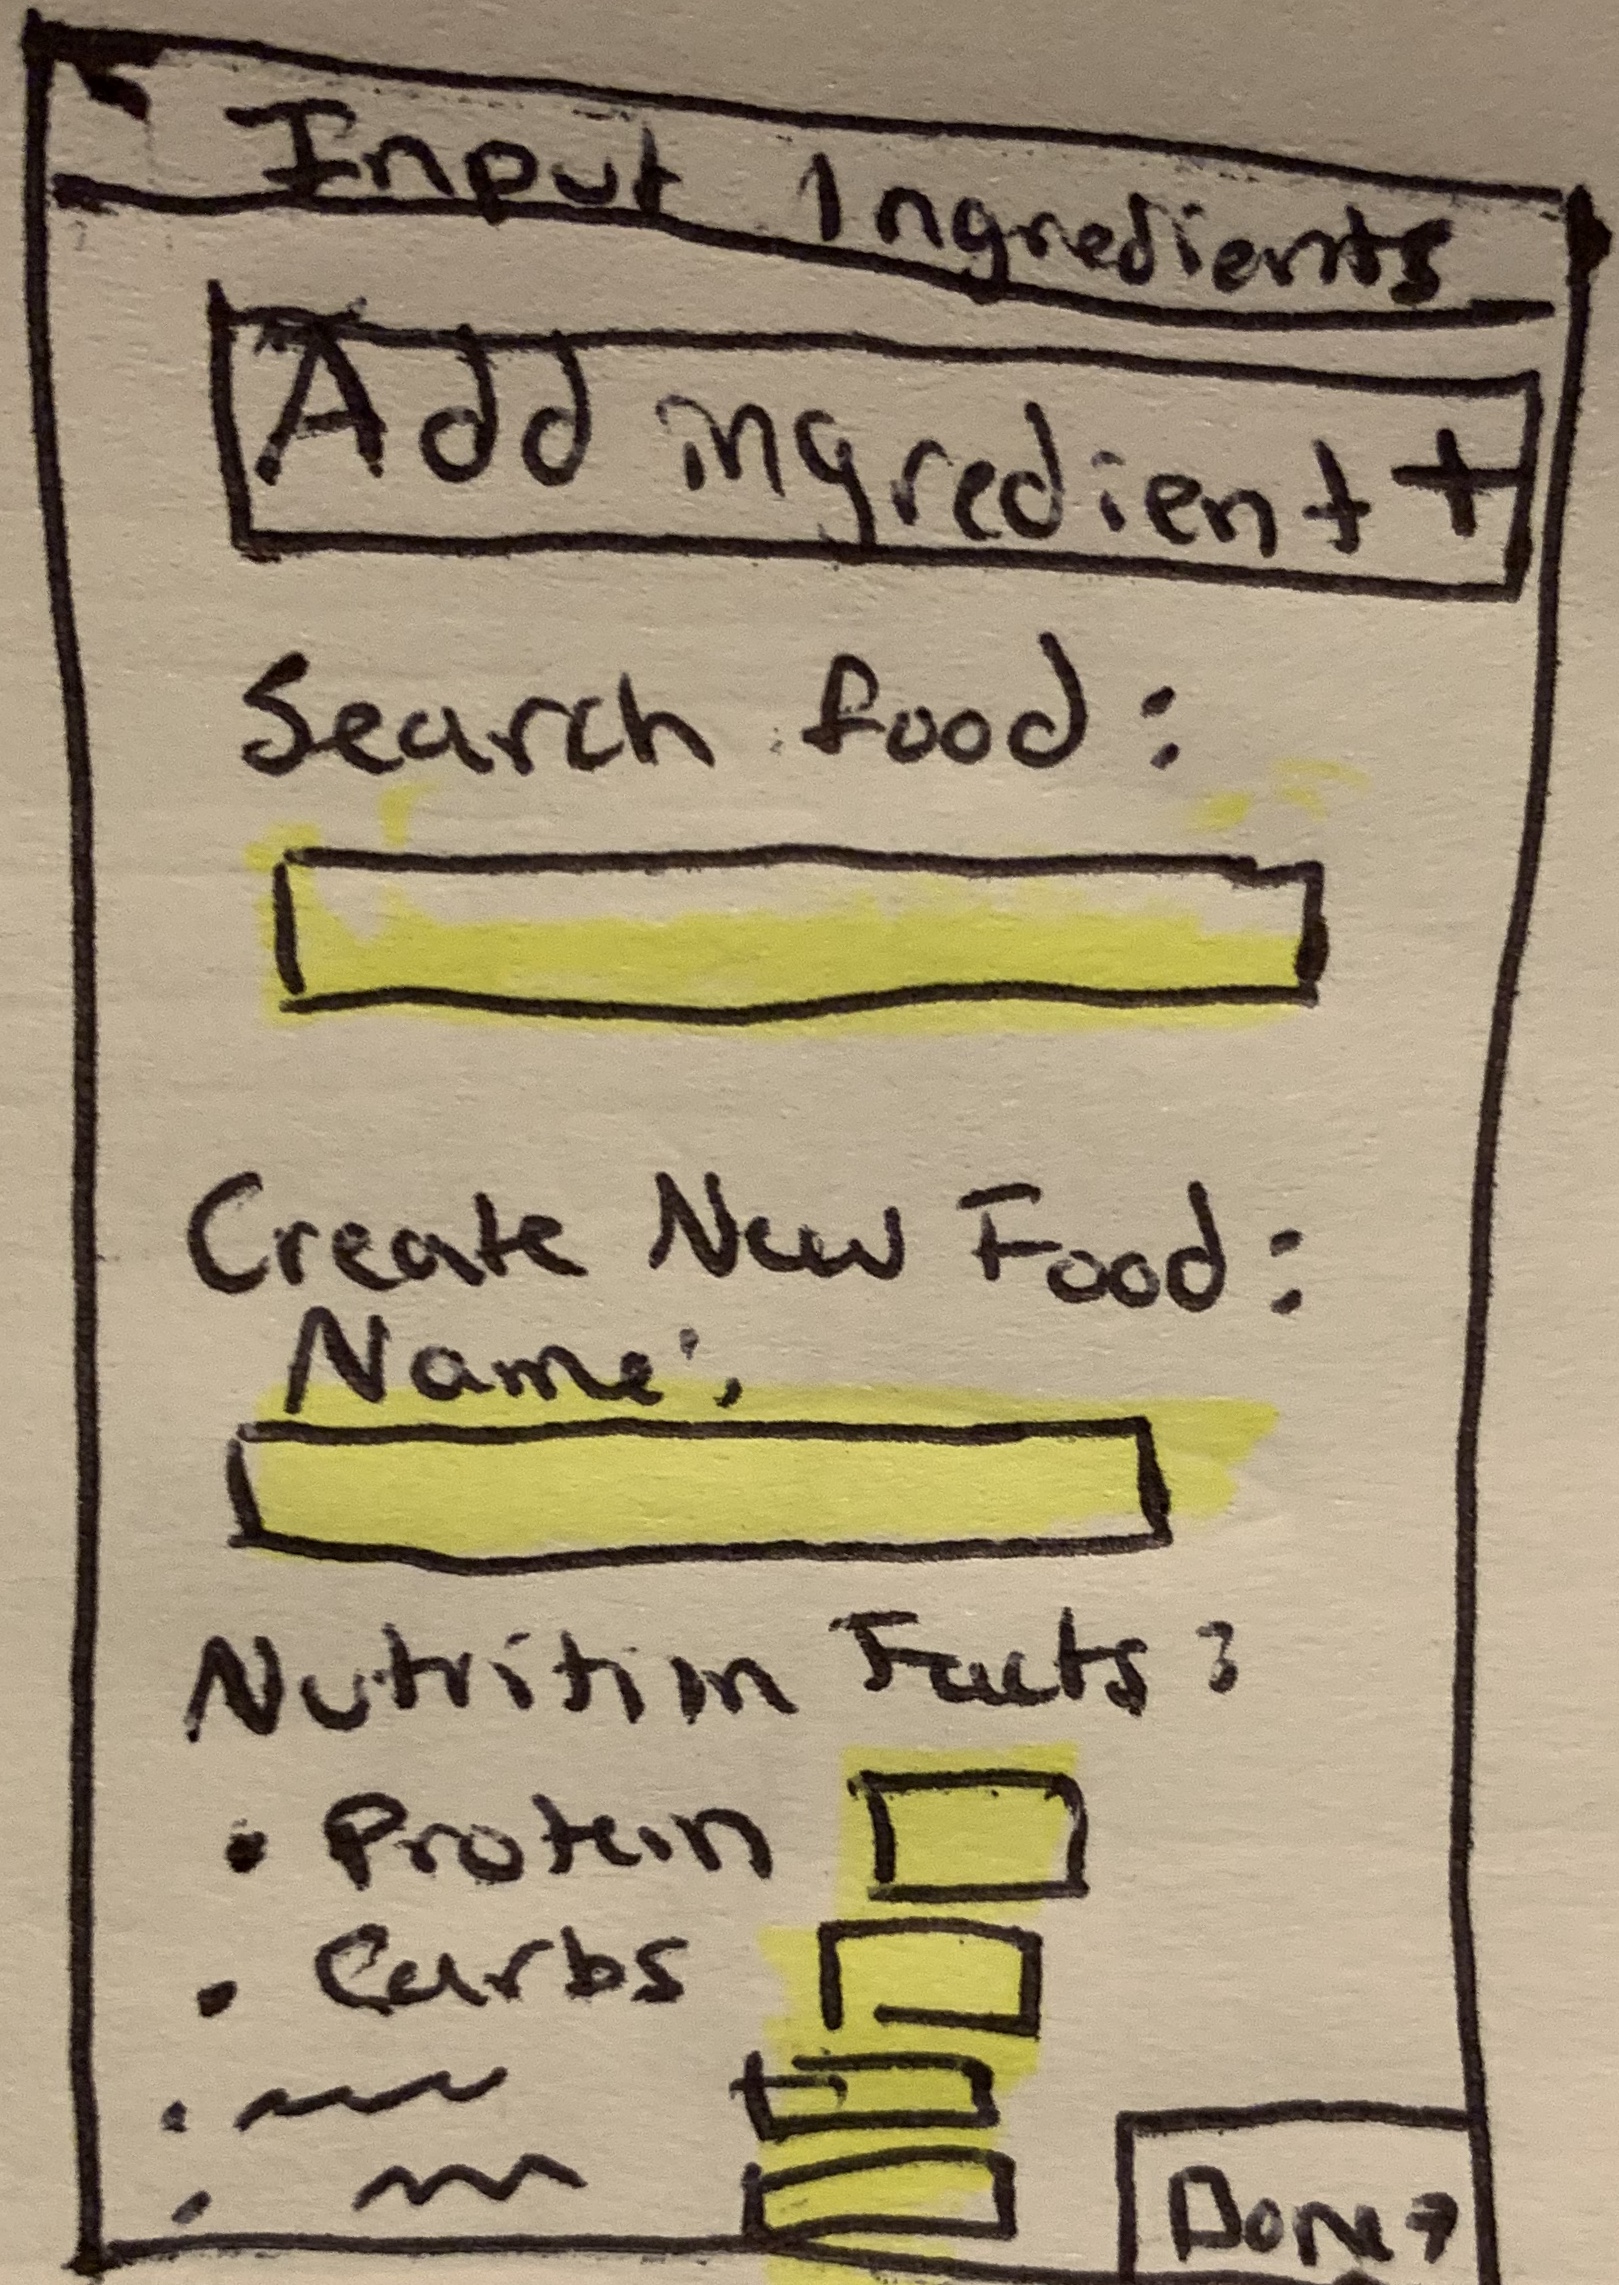 Input Ingredients
Add ingredient +
Search food:
Create New Food:
Name:
Nutrition Facts:
• Protein
• Carbs
Done →